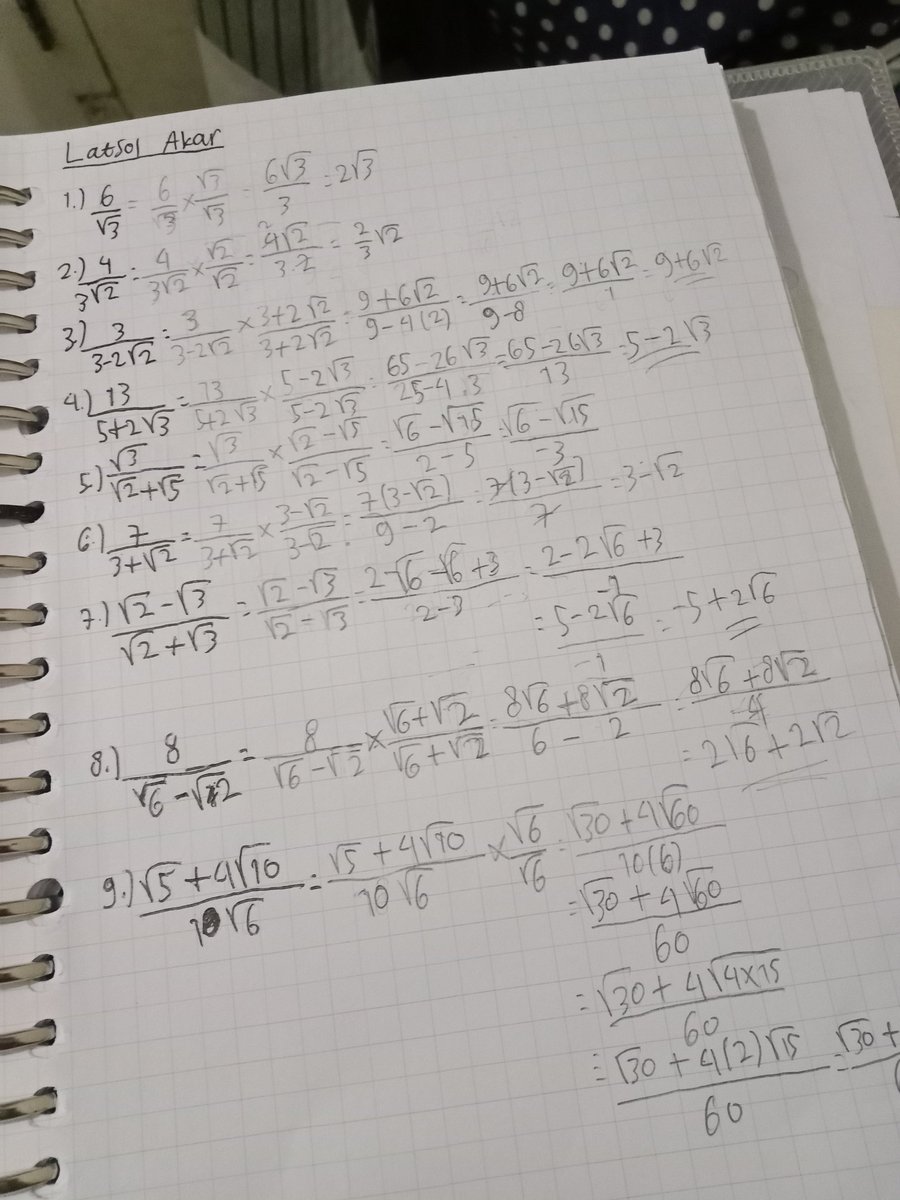 Latsol Akar
1.) 6/√3 = 6/√3 × √3/√3 = 6√3/3 = 2√3
2.) 4/3√2 = 4/3√2 × √2/√2 = 4√2/3·2 = 2/3 √2
3.) 3/3-2√2 = 3/3-2√2 × 3+2√2/3+2√2 = 9+6√2/9-4(2) = 9+6√2/9-8 = 9+6√2/1 = 9+6√2
4.) 13/5+2√3 = 13/5+2√3 × 5-2√3/5-2√3 = 65-26√3/25-4.3 = 65-26√3/13 = 5-2√3
5.) √3/√2+√5 = √3/√2+√5 × √2-√5/√2-√5 = √6-√15/2-5 = √6-√15/-3
6.) 7/3+√2 = 7/3+√2 × 3-√2/3-√2 = 7(3-√2)/9-2 = 7(3-√2)/7 = 3-√2
7.) √2-√3/√2+√3 = √2-√3/√2-√3 = 2-√6-√6+3/2-3 = 2-2√6+3/-1
= 5-2√6/-1 = -5+2√6
8.) 8/√6-√2 = 8/√6-√2 × √6+√2/√6+√2 = 8√6+8√2/6-2 = 8√6+8√2/4
= 2√6+2√2
9.) √5+4√10/10√6 = √5+4√10/10√6 × √6/√6 = √30+4√60/10(6)
= √30+4√60/60
= √30+4√4×15/60
= √30+4(2)√15/60 = √30+